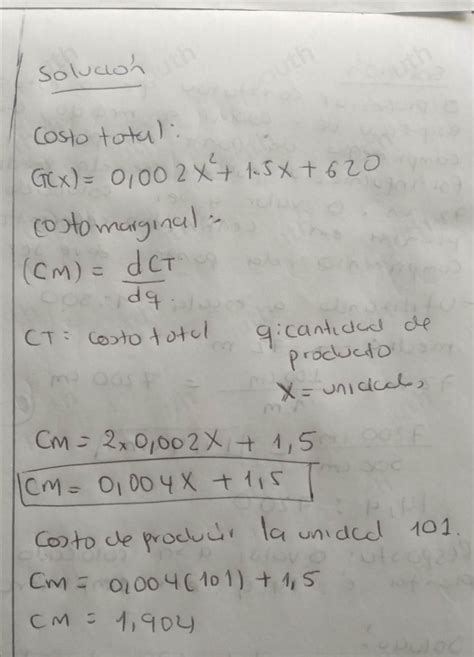 Solución
Costo total:
G(x) = 0,002x² + 1.5x + 620
Costo marginal:
(CM) = dCT
dq.
CT: costo total q: cantidad de
producto
X = unidades
CM = 2x0,002X + 1,5
CM = 0,004X + 1,5
Costo de producir la unidad 101.
CM = 0,004(101) + 1,5
CM = 1,904